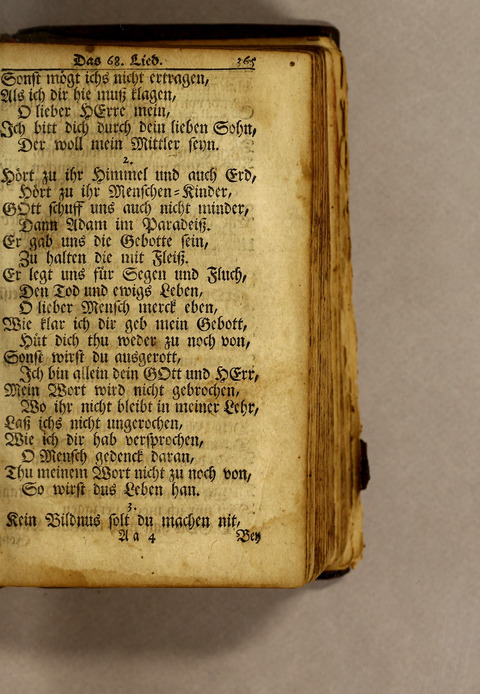 Das 68. Lied. 365
Sonst mögt ichs nicht ertragen,
Als ich dir hie muß klagen,
O lieber HErre mein,
Ich bitt dich durch dein lieben Sohn,
Der woll mein Mittler seyn.
2.
Hört zu ihr Himmel und auch Erd,
Hört zu ihr Menschen-Kinder,
GOtt schuff uns auch nicht minder,
Dann Adam im Paradeiß.
Er gab uns die Gebotte sein,
Zu halten die mit Fleiß.
Er legt uns für Segen und Fluch,
Den Tod und ewigs Leben,
O lieber Mensch merck eben,
Wie klar ich dir geb mein Gebott,
Hüt dich thu weder zu noch von,
Sonst wirst du ausgerott,
Ich bin allein dein GOtt und HErr,
Mein Wort wird nicht gebrochen,
Wo ihr nicht bleibt in meiner Lehr,
Laß ichs nicht ungerochen,
Wie ich dir hab versprochen,
O Mensch gedenck daran,
Thu meinem Wort nicht zu noch von,
So wirst dus Leben han.
3.
Kein Bildnus solt du machen nit,
A a 4 Bey